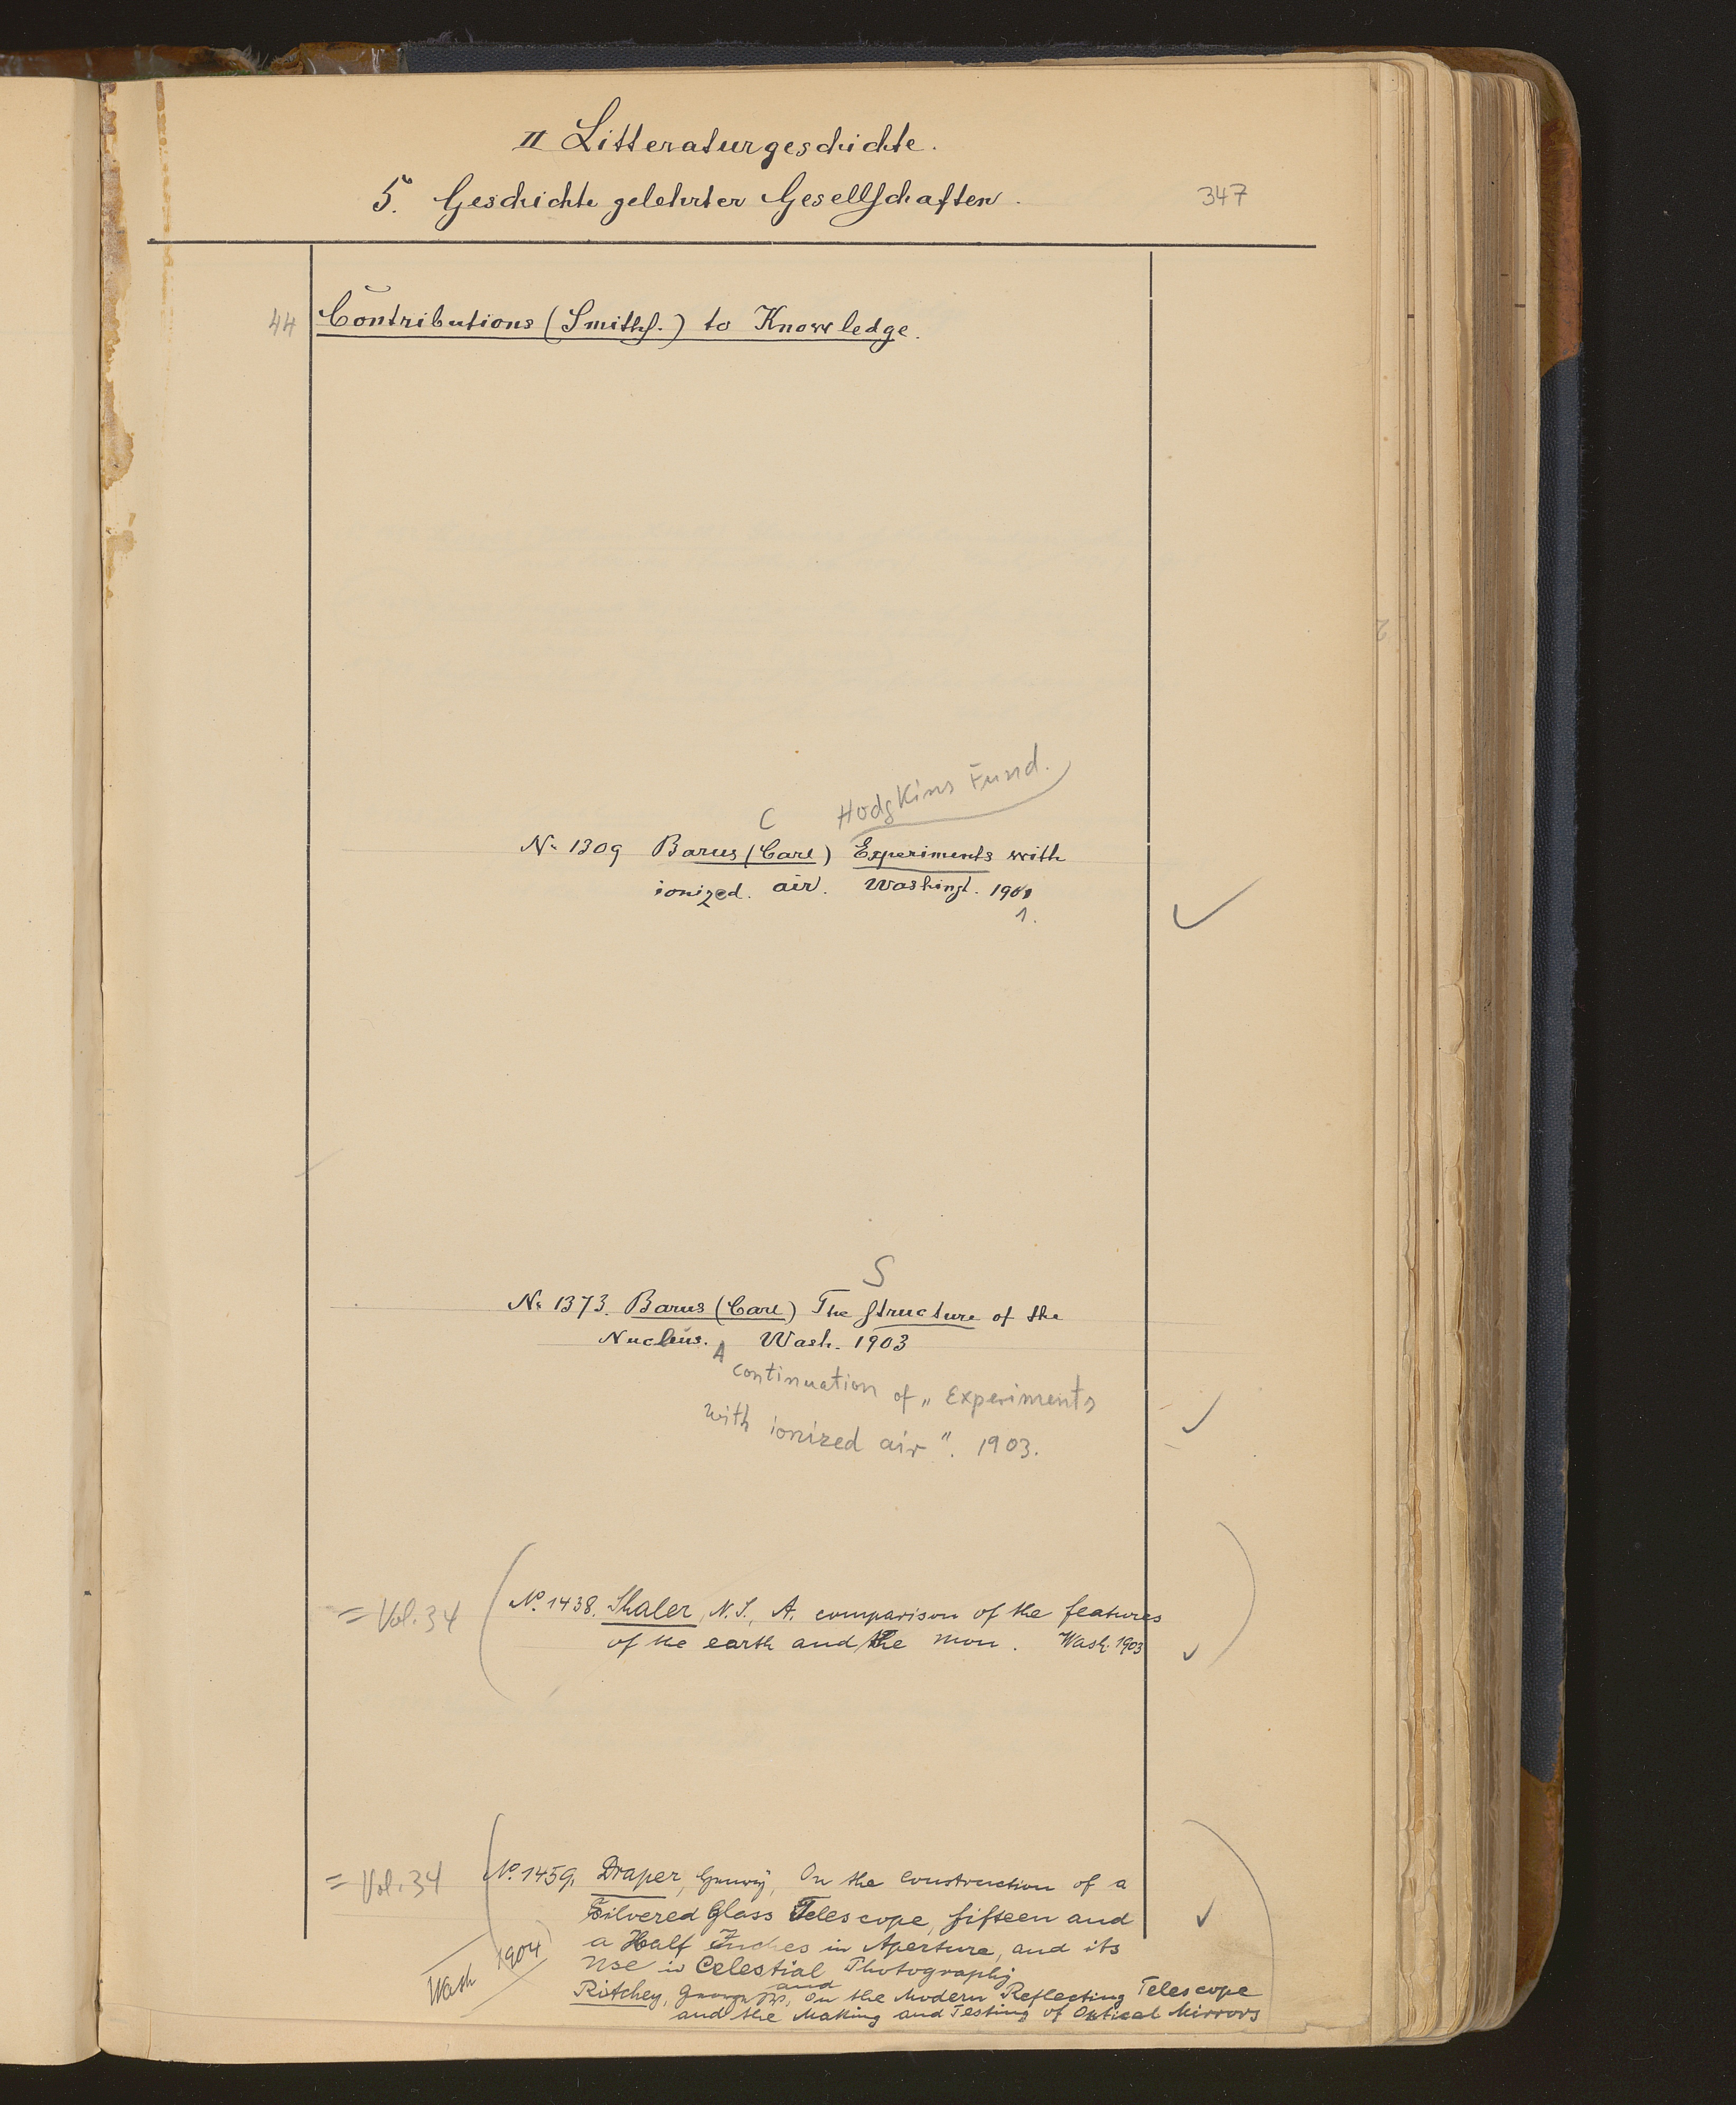 II Litteraturgeschichte.
5. Geschichte gelehrter Gesellschaften.
347
44 Contributions (Smiths.) to Knowledge.
Hodgkins Fund.
C
No 1309 Barus (Carl) Experiments with
ionized air. Washingt. 1901
1.
S
No 1373. Barus (Carl) The Structure of the
Nucleus. Wash. 1903
A continuation of „Experiments
with ionized air". 1903.
= Vol. 34 (No. 1438. Shaler, N. S., A. comparison of the features
of the earth and the mon. Wash. 1903)
= Vol. 34 (No. 1459. Draper, Henry, On the Construction of a
Silvered Glass Telescope, fifteen and
a Half Inches in Aperture, and its
Use in Celestial Photography
and
Wash 1904
Ritchey, On the Modern Reflecting Telescope
and the Making and Testing of Optical Mirrors